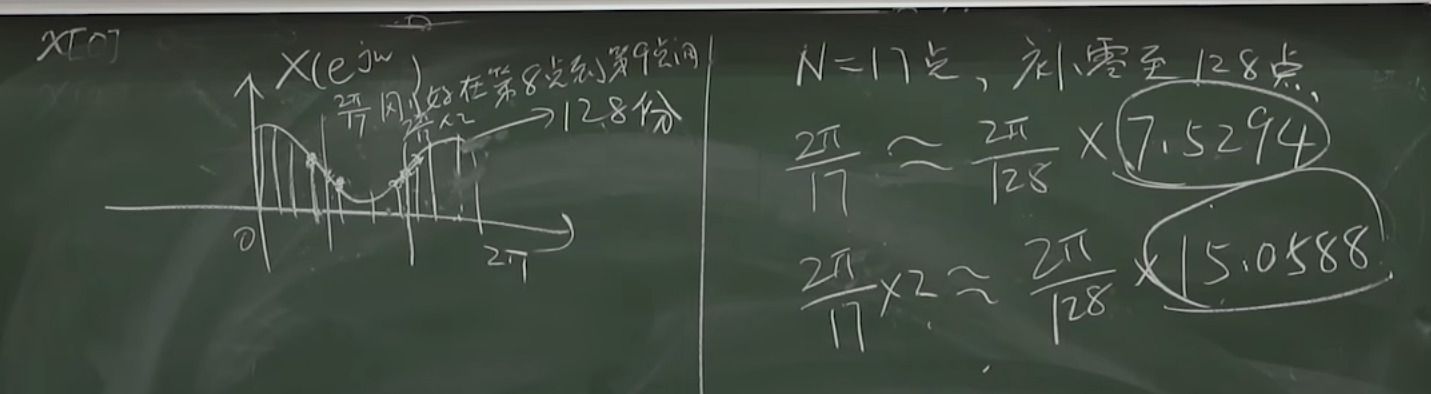 X[0]
X(e^{jω})
2π/17 刚好在第8点到第9点间
2π/17 ×2
128份
0
2π
N=17点, 补零至128点
2π/17 ≈ 2π/128 × 7.5294
2π/17 ×2 ≈ 2π/128 × 15.0588